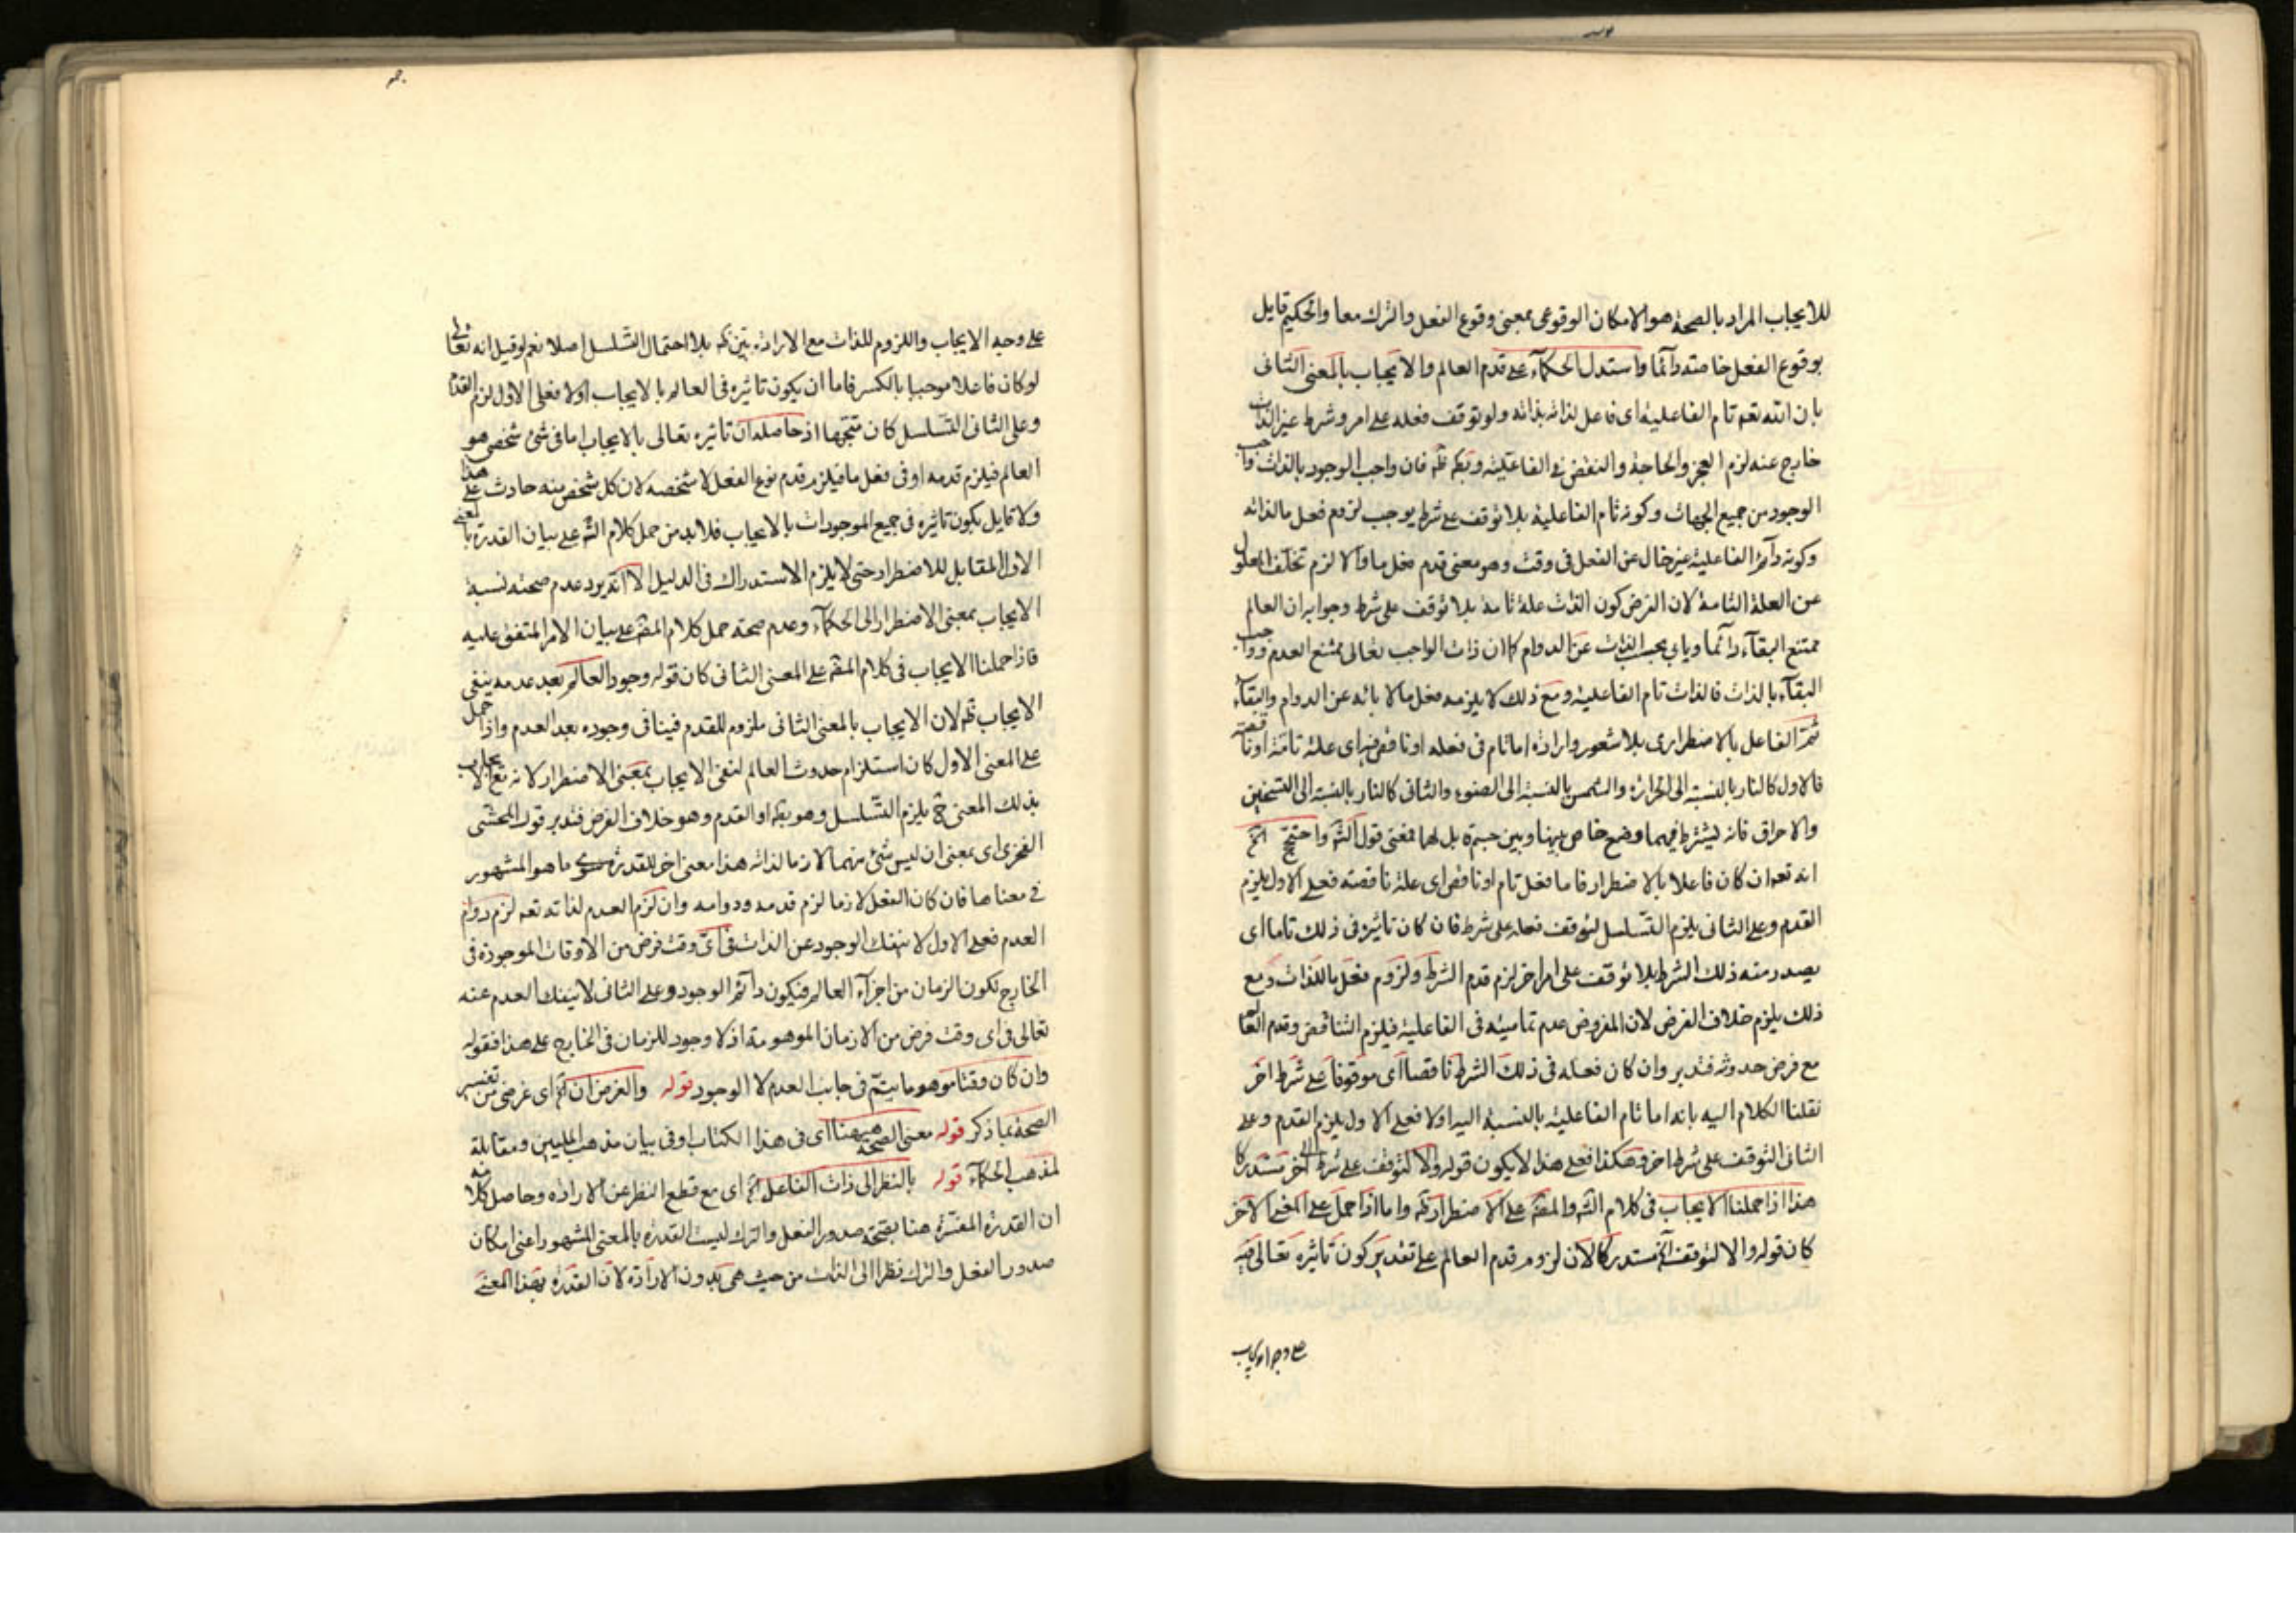 للايجاب المراد بالصحة هو الامكان الوقوعى بمعنى وقوع الفعل والترك معا والحكيم قايل
بوقوع الفعل خاصة دائما واستدل الحكماء على قدم العالم والايجاب بالمعنى الثانى
بان الله تعم تام الفاعلية اى فاعل لذاته بذاته ولو توقف فعله على امر وشرط غير الذات
خارج عنه لزم العجز والحاجة والنقض فى الفاعلية فان واجب الوجود بالذات واجب
الوجود من جميع الجهات وكونه تام الفاعلية بلا توقف على شرط يوجب لزوم فعل ما لذاته
وكونه دائم الفاعلية غير خال عن الفعل فى وقت وهو معنى قدم فعل ما والا لزم تخلف المعلول
عن العلة التامة لان الفرض كون الذات علة تامة بلا توقف على شرط وجوابه ان العالم
ممتنع البقاء دائما ويابى بحسب الذات عن الدوام كما ان ذات الواجب تعالى ممتنع العدم وواجب
البقاء بالذات فالذات تام الفاعلية ومع ذلك لا يلزمه فعل ما لابائه عن الدوام والبقاء
ثم الفاعل بالاضطرارى بلا شعور وارادة اما تام فى فعله او ناقص فيه اى علة تامة او ناقصة
فالاول كالنار بالنسبة الى الحرارة والشمس بالنسبة الى الضوء والثانى كالنار بالنسبة الى التسخين
والاحراق فانه يشترط فيهما وضع خاص بينها وبين جسم قابل لهما فمعنى قول الش واحتج اخ
انه تعم ان كان فاعلا بالاضطرار فاما فعل تام او ناقص اى علة ناقصة فعلى الاول يلزم
القدم وعلى الثانى يلزم التسلسل لتوقف فعله على شرط فان كان تاثيره فى ذلك تاما اى
يصدر منه ذلك الشرط بلا توقف على امر اخر لزم قدم الشرط ولزوم فعل بالذات ومع
ذلك يلزم خلاف الفرض لان المفروض عدم تماميته فى الفاعلية فيلزم التناقض وقدم العالم
مع فرض حدوثه فتدبر وان كان فعله فى ذلك الشرط ناقصا اى موقوفا على شرط اخر
نقلنا الكلام اليه بانه اما تام الفاعلية بالنسبة اليه اولا فعلى الاول يلزم القدم وعلى
الثانى التوقف على شرط اخر وهكذا فعلى هذا لا يكون قوله والا لتوقف على شرط اخر مستدركا
هذا اذا حملنا الايجاب فى كلام الش والمص على الاضطرار واما اذا حمل على المعنى الاخر
كان قوله والا لتوقف اخ مستدركا لان لزوم قدم العالم على تقدير كون تاثيره تعالى فيه
على وجه الايجاب
على وجه الايجاب واللزوم للذات مع الارادة بين بلا احتمال التسلسل اصلا نعم لو قيل انه تعالى
لو كان فاعلا موجبا بالكسر فاما ان يكون تاثيره فى العالم بالايجاب اولا فعلى الاول لزم القدم
وعلى الثانى التسلسل كان متجها اذ حاصله ان تاثيره تعالى بالايجاب اما فى شئ شخص هو
العالم فيلزم قدمه او فى فعل ما فيلزم قدم نوع الفعل لا شخصه لان كل شخص منه حادث على هذا
ولا قايل بكون تاثيره فى جميع الموجودات بالايجاب فلا بد من حمل كلام الش على بيان القدرة بالمعنى
الاول المقابل للاضطرار حتى لا يلزم الاستدراك فى الدليل الا انه يرد عدم صحته نسبة
الايجاب بمعنى الاضطرار الى الحكماء وعدم صحة حمل كلام المص على بيان الامر المتفق عليه
فاذا حملنا الايجاب فى كلام المص على المعنى الثانى كان قوله وجود العالم بعد عدمه ينفى
الايجاب لان الايجاب بالمعنى الثانى ملزوم للقدم فينافى وجوده بعد العدم واذا حمل
على المعنى الاول كان استلزام حدوث العالم لنفى الايجاب بمعنى الاضطرار لانه مع الايجاب
بذلك المعنى ح يلزم التسلسل وهو او القدم وهو خلاف الفرض فتدبر قول المحشى
الفخرى اى بمعنى ان ليس شئ منهما لازما لذاته هذا معنى اخر للقدرة ما هو المشهور
فى معناها فان كان الفعل لازما لزم قدمه ودوامه وان لزم العدم لذاته تعم لزم دوام
العدم فعلى الاول لا ينفك الوجود عن الذات فى اى وقت فرض من الاوقات الموجودة فى
الخارج لكون الزمان من اجزاء العالم فيكون دائم الوجود وعلى الثانى لا ينفك العدم عنه
تعالى فى اى وقت فرض من الازمان الموهومة اذ لا وجود للزمان فى الخارج على هذا فقوله
وان كان وقتا موهوما يتم فى جانب العدم لا الوجود قوله والغرض ان اى غرضى من تفسير
الصحة بما ذكر قوله معنى الصحة ههنا اى فى هذا الكتاب وفى بيان مذهب المليين ومقابلة
لمذهب الحكماء قوله بالنظر الى ذات الفاعل اخ اى مع قطع النظر عن الارادة وحاصل كلامه
ان القدرة المفسرة هنا بصحة صدور الفعل والترك ليست القدرة بالمعنى المشهور اعنى امكان
صدور الفعل والترك نظرا الى الذات من حيث هى بدون الارادة لان القدرة بهذا المعنى